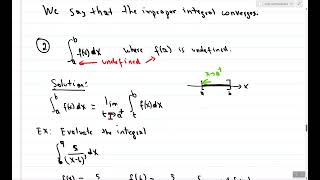 We say that the improper integral converges.
② ∫_a^b f(x)dx where f(a) is undefined.
undefined
Solution:
x→a⁺
∫_a^b f(x)dx = lim_{t→a⁺} ∫_t^b f(x)dx
a b x
Ex: Evaluate the integral